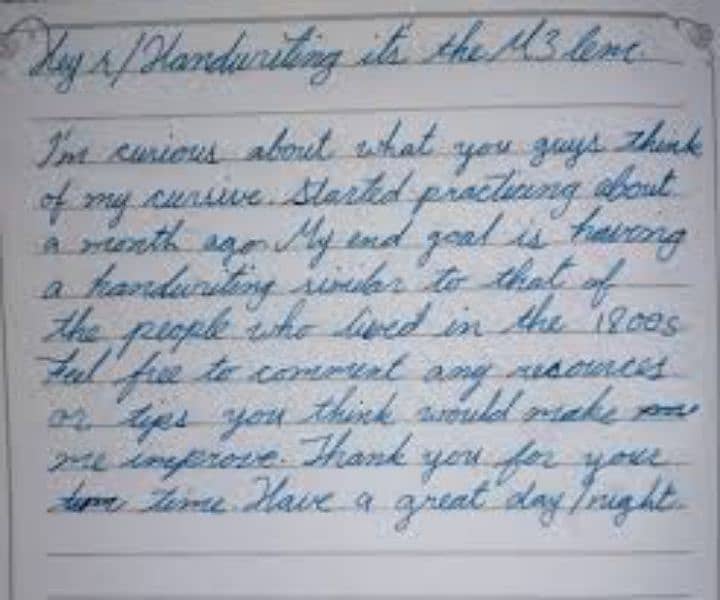 Hey r/Handwriting it's the M3 leme
I'm curious about what you guys think
of my cursive. Started practicing about
a month ago. My end goal is having
a handwriting similar to that of
the people who lived in the 1800s
Feel free to comment any resources
or tips you think would make
me improve. Thank you for your
time. Have a great day/night.